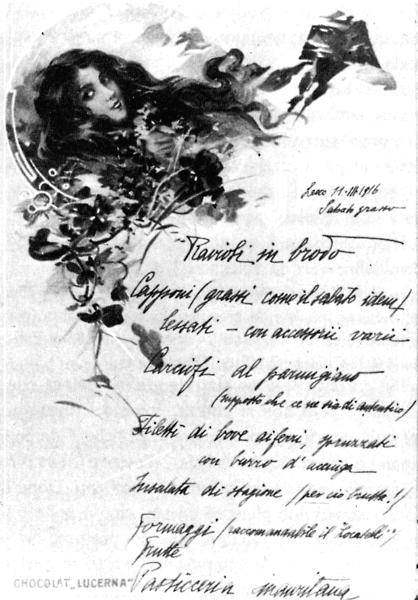 Lecco 11-III-1916
Sabato grasso
Ravioli in brodo
Capponi (grassi come il sabato idem)
lessati - con accessorii varii
Carciofi al parmigiano
(supposto che ce ne sia di autentico)
Filetti di bove ai ferri, spruzzati
con burro d'acciuga
Insalata di stagione (per cui brutta!)
Formaggi (raccomandabile il Locatelli")
Frutte
Pasticceria mauritana
CHOCOLAT „LUCERNA"